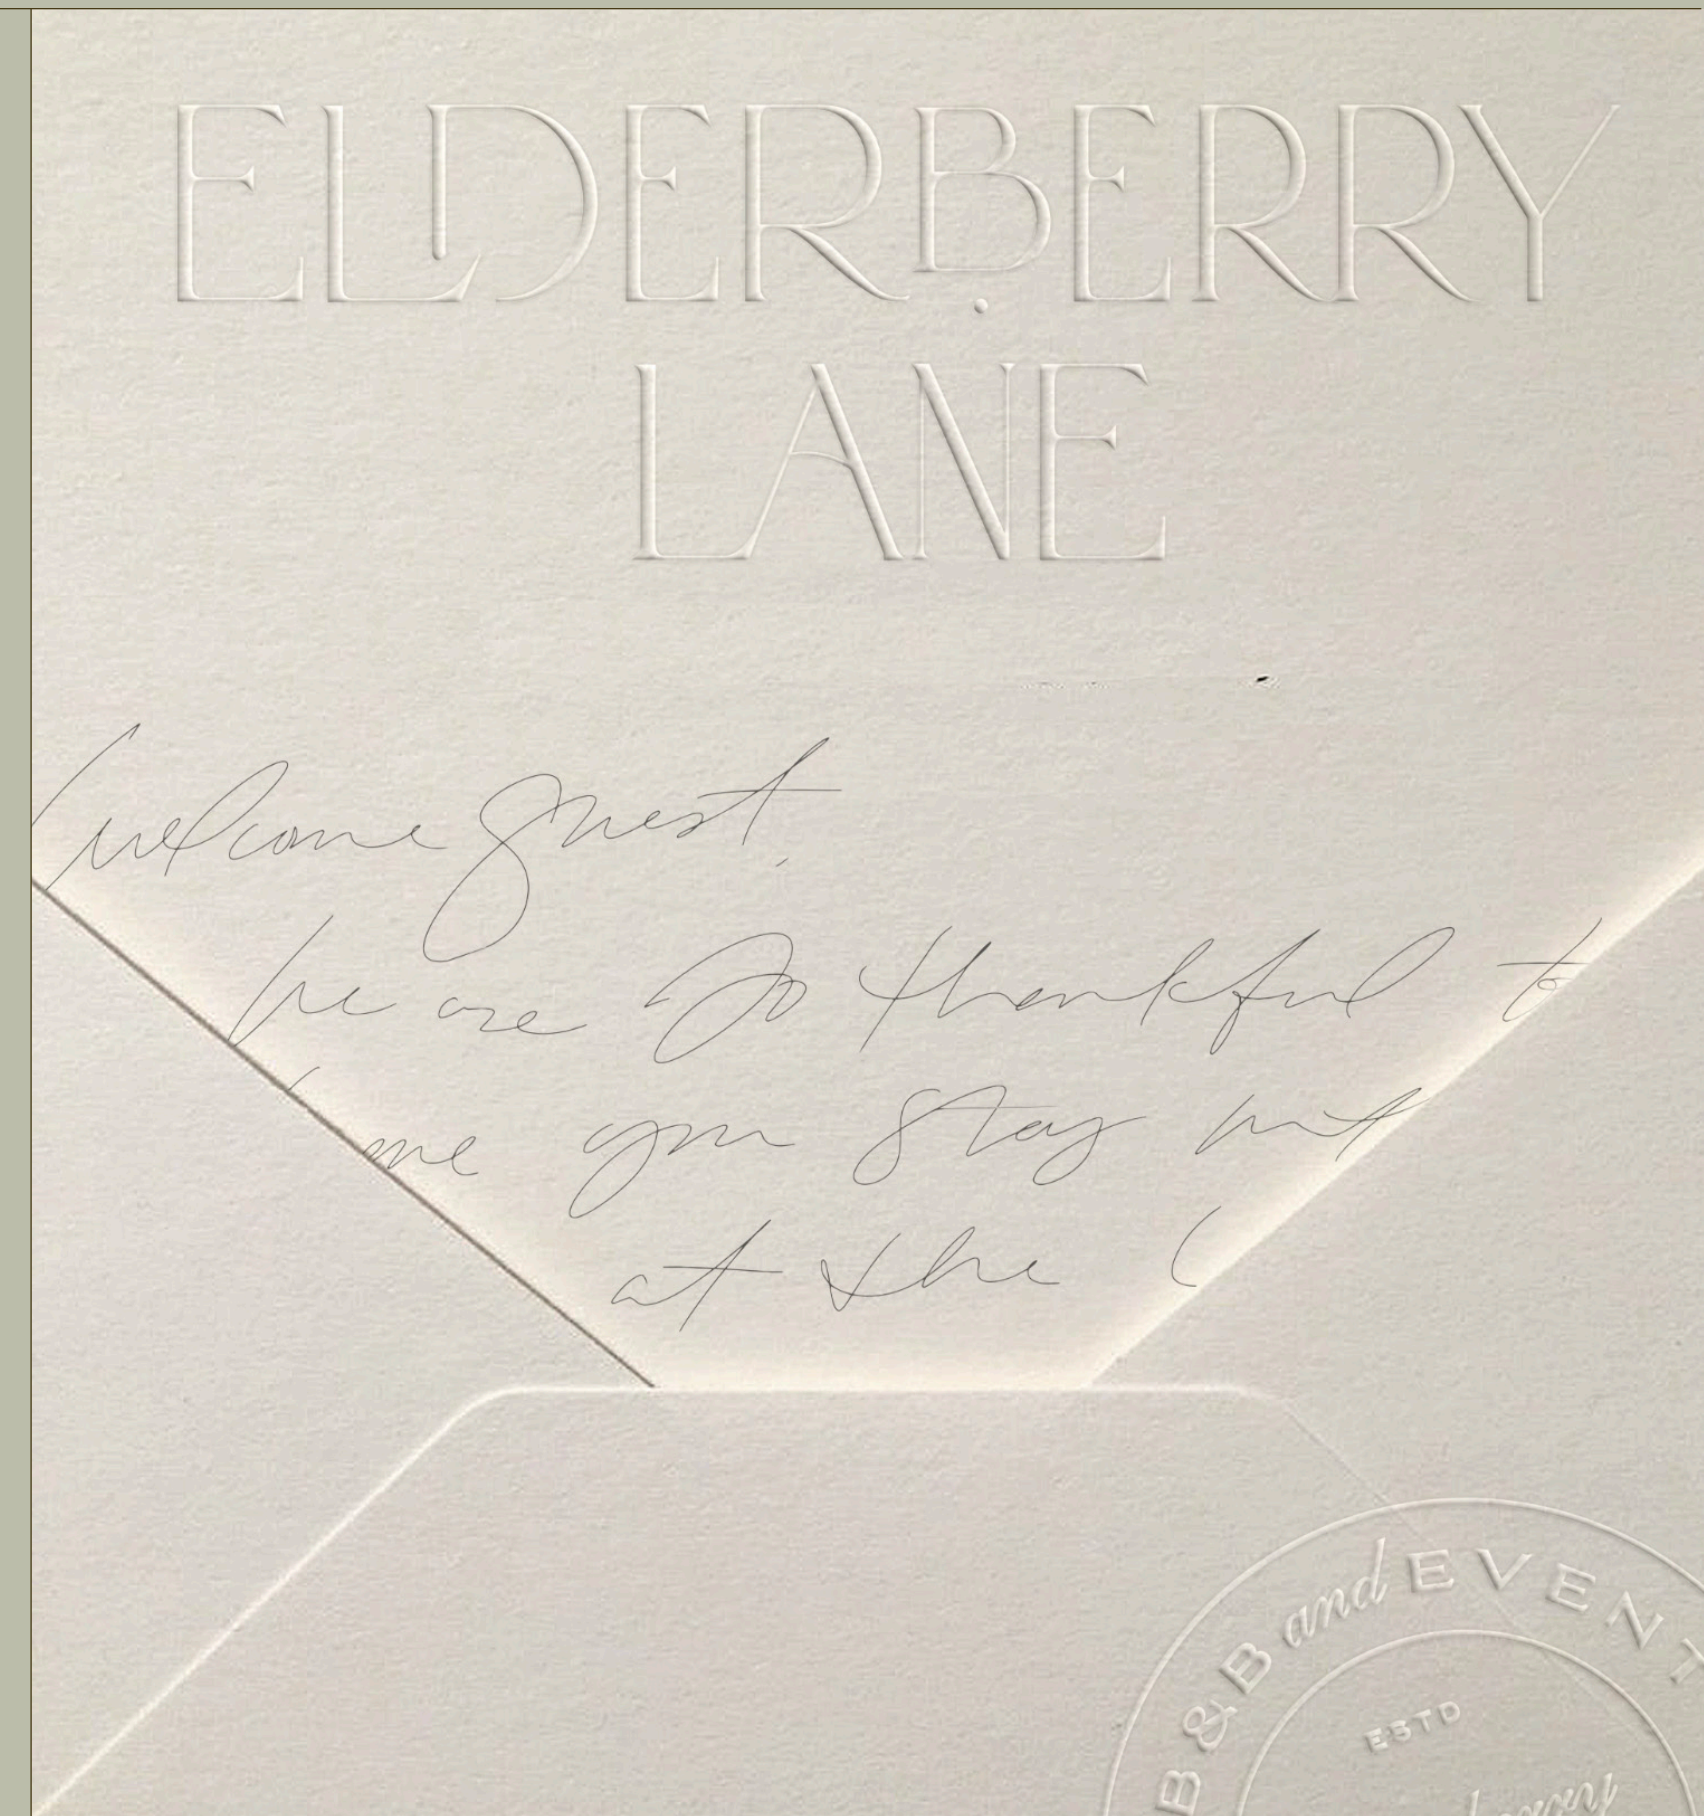 ELDERBERRY
LANE
Welcome guest,
We are so thankful to
have you stay with
at the
B&B and EVENT
ESTD